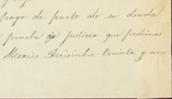 pago de parte de su deuda
prueba de justicia que pedimos
México Diciembre treinta y uno